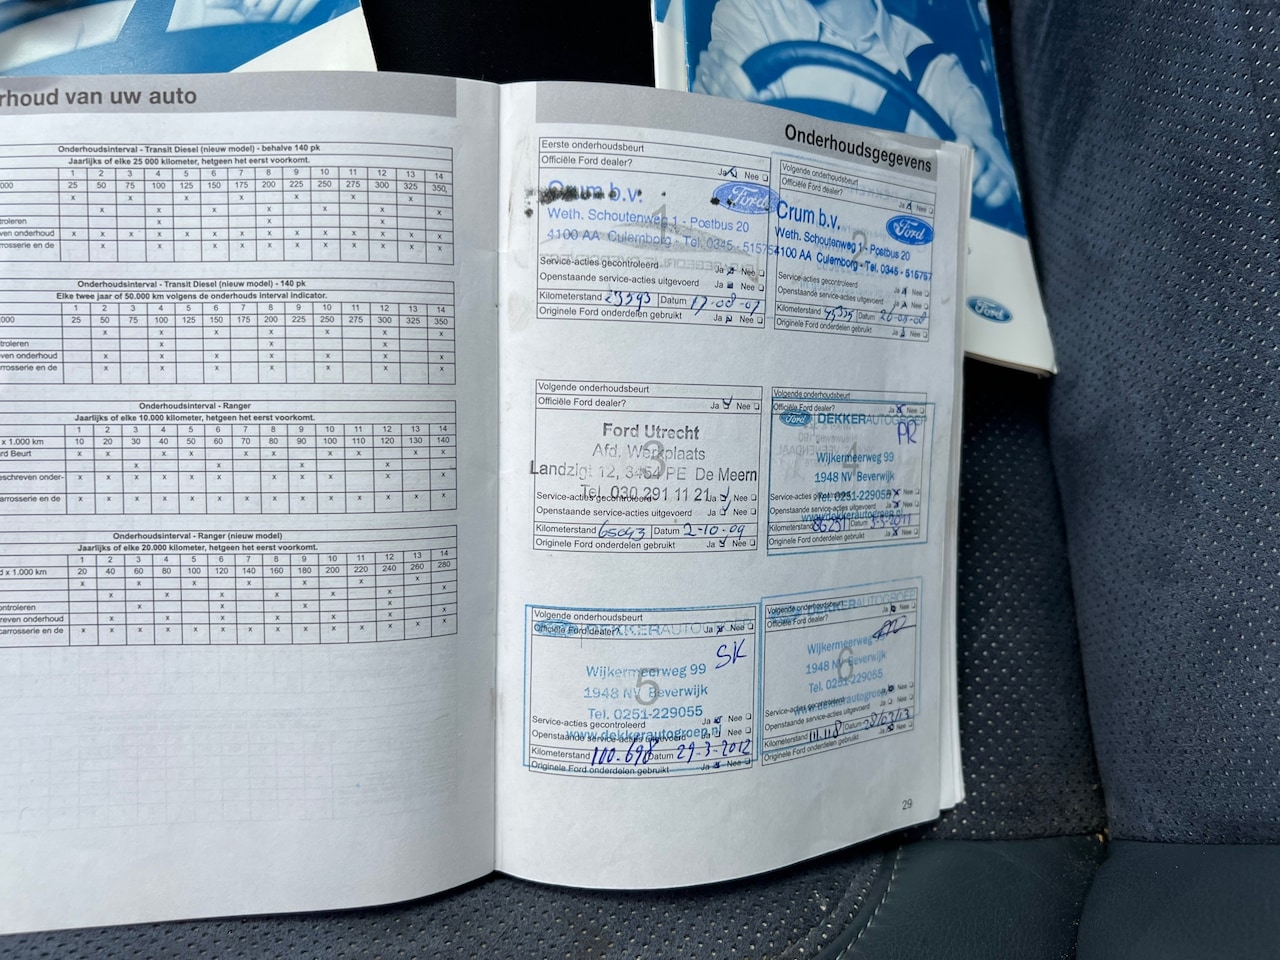 rhoud van uw auto
Onderhoudsinterval - Transit Diesel (nieuw model) - behalve 140 pk
Jaarlijks of elke 25 000 kilometer, hetgeen het eerst voorkomt.
1 2 3 4 5 6 7 8 9 10 11 12 13 14
000 25 50 75 100 125 150 175 200 225 250 275 300 325 350
x x x x x x x
x x x x x x x
roleren x x x
ven onderhoud x x x x x x x x x x x x x x
rrosserie en de x x x x x x x
Onderhoudsinterval - Transit Diesel (nieuw model) - 140 pk
Elke twee jaar of 50.000 km volgens de onderhouds interval indicator.
1 2 3 4 5 6 7 8 9 10 11 12 13 14
000 25 50 75 100 125 150 175 200 225 250 275 300 325 350
x x x x x x x
troleren x x x
ven onderhoud x x x x x x x
rrosserie en de x x x x x x x
Onderhoudsinterval - Ranger
Jaarlijks of elke 10.000 kilometer, hetgeen het eerst voorkomt.
1 2 3 4 5 6 7 8 9 10 11 12 13 14
x 1.000 km 10 20 30 40 50 60 70 80 90 100 110 120 130 140
rd Beurt x x x x x x x x x x x x x x
x x x x
schreven onder- x x x x x x x
arrosserie en de x x x x x x x x x x x x x x
Onderhoudsinterval - Ranger (nieuw model)
Jaarlijks of elke 20.000 kilometer, hetgeen het eerst voorkomt.
1 2 3 4 5 6 7 8 9 10 11 12 13 14
d x 1.000 km 20 40 60 80 100 120 140 160 180 200 220 240 260 280
x x x x x x x
x x x x x x x
ontroleren x x x x
reven onderhoud x x x x x x x
carrosserie en de x x x x x x x x x x x x x x
Onderhoudsgegevens
Eerste onderhoudsbeurt
Officiële Ford dealer? Ja Nee
1
Crum b.v.
Ford
Weth. Schoutenweg 1 - Postbus 20
4100 AA Culemborg - Tel. 0345 - 515754
Service-acties gecontroleerd Ja Nee
Openstaande service-acties uitgevoerd Ja Nee
Kilometerstand 23393 Datum 17-08-07
Originele Ford onderdelen gebruikt Ja Nee
Volgende onderhoudsbeurt
Officiële Ford dealer? Ja Nee
2
Crum b.v.
Ford
Weth. Schoutenweg 1 - Postbus 20
4100 AA Culemborg - Tel. 0345 - 515757
Service-acties gecontroleerd Ja Nee
Openstaande service-acties uitgevoerd Ja Nee
Kilometerstand Datum
Originele Ford onderdelen gebruikt Ja Nee
Volgende onderhoudsbeurt
Officiële Ford dealer? Ja Nee
3
Ford Utrecht
Afd. Werkplaats
Landzigt 12, 3454 PE De Meern
Tel. 030 291 11 21
Service-acties gecontroleerd Ja Nee
Openstaande service-acties uitgevoerd Ja Nee
Kilometerstand 65043 Datum 2-10-09
Originele Ford onderdelen gebruikt Ja Nee
Volgende onderhoudsbeurt
Officiële Ford dealer? Ja Nee
4
Ford DEKKERAUTOGROEP
PR
Wijkermeerweg 99
1948 NV Beverwijk
Tel. 0251-229055
Service-acties gecontroleerd Ja Nee
Openstaande service-acties uitgevoerd Ja Nee
www.dekkerautogroep.nl
Kilometerstand 86291 Datum 3-3-2011
Originele Ford onderdelen gebruikt Ja Nee
Volgende onderhoudsbeurt
Officiële Ford dealer? Ja Nee
5
DEKKERAUTO
SK
Wijkermeerweg 99
1948 NV Beverwijk
Tel. 0251-229055
Service-acties gecontroleerd Ja Nee
Openstaande service-acties uitgevoerd Ja Nee
www.dekkerautogroep.nl
Kilometerstand 100.698 Datum 29-3-2012
Originele Ford onderdelen gebruikt Ja Nee
Volgende onderhoudsbeurt
Officiële Ford dealer? Ja Nee
6
DEKKERAUTOGROEP
Wijkermeerweg
1948 NV Beverwijk
Tel. 0251-229055
www.dekkerautogroep
Service-acties gecontroleerd Ja Nee
Openstaande service-acties uitgevoerd Ja Nee
Kilometerstand 111.118 Datum 28/03/13
Originele Ford onderdelen gebruikt Ja Nee
29
Ford